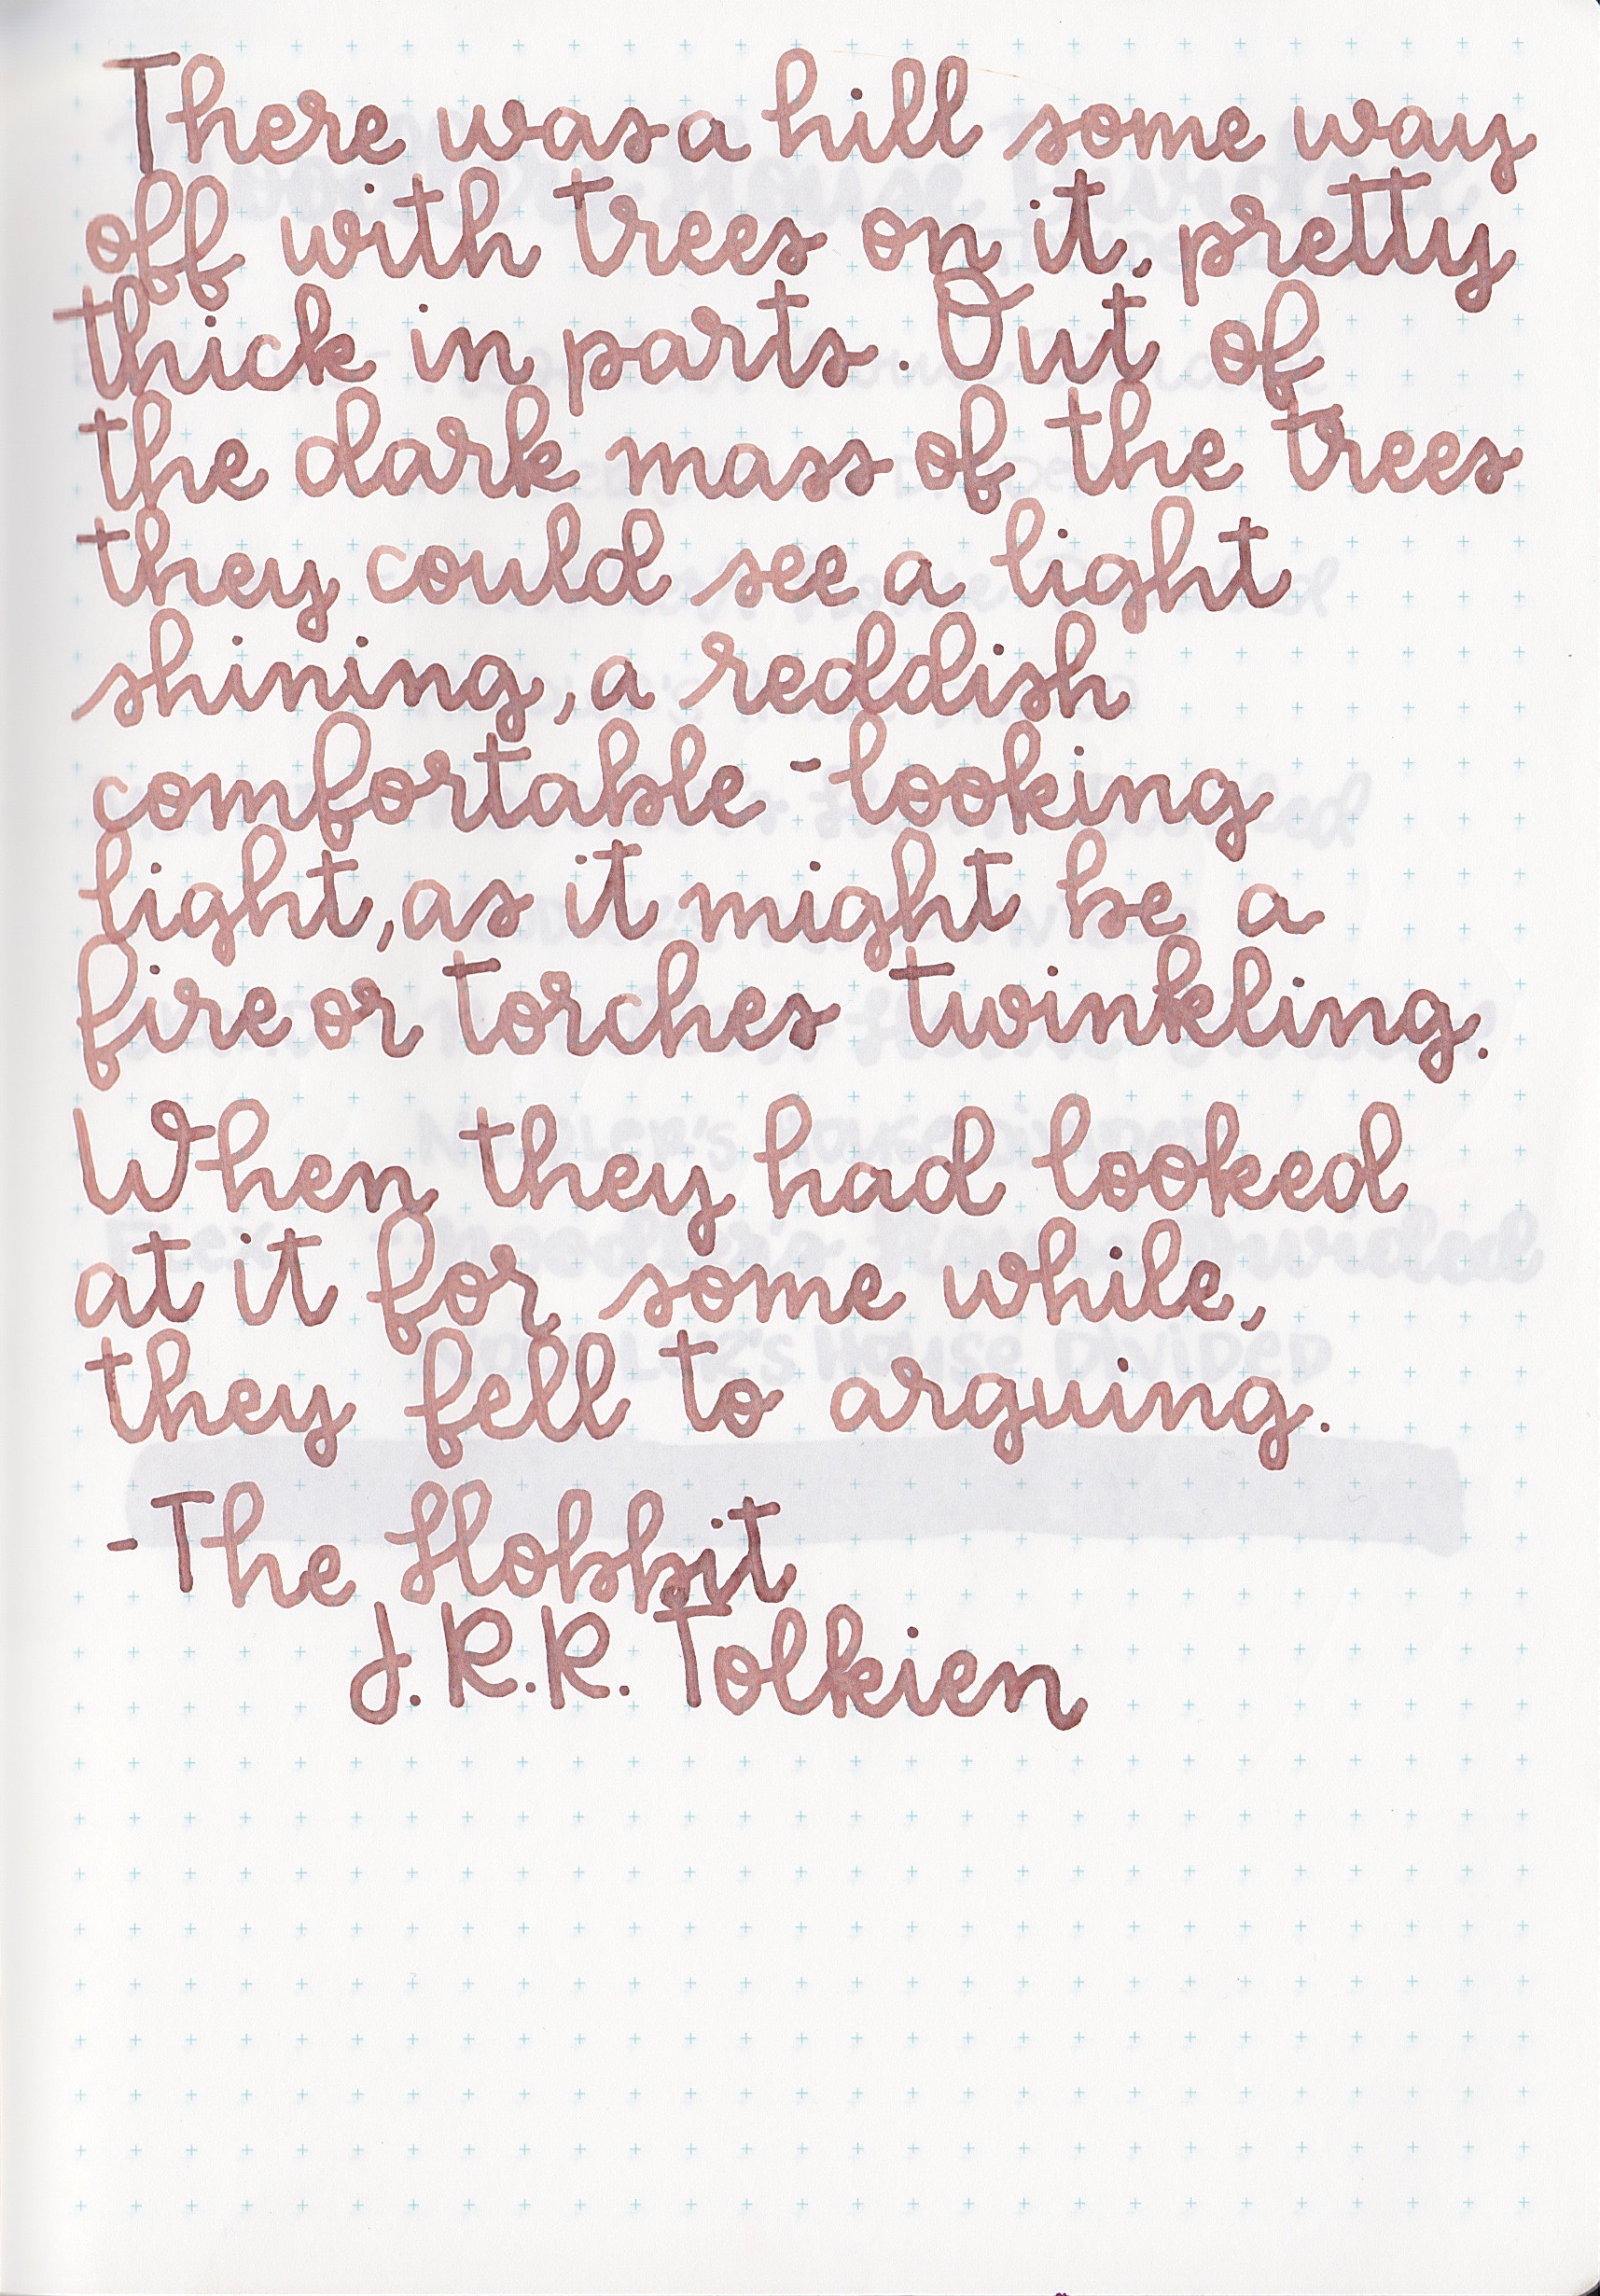 There was a hill some way
off with trees on it, pretty
thick in parts. Out of
the dark mass of the trees
they could see a light
shining, a reddish
comfortable-looking
light, as it might be a
fire or torches twinkling.
When they had looked
at it for some while,
they fell to arguing.
-The Hobbit
J.R.R. Tolkien